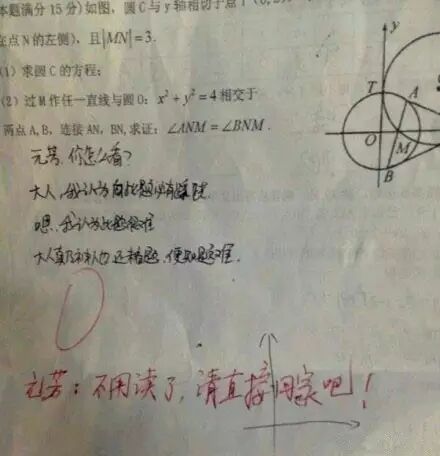 本题满分15分)如图,圆C与y轴相切于点T(0,2)
在点N的左侧),且|MN|=3.
(1)求圆C的方程;
(2)过M作任一直线与圆O:x²+y²=4相交于
两点A,B,连接AN,BN,求证:∠ANM=∠BNM.
元芳,你怎么看?
大人,我认为此题必有蹊跷
嗯,我认为此题很难
大人真乃神人也,还未看题,便知题难.
0
元芳:不用读了,请直接回家吧!
y
T
A
O
M
B